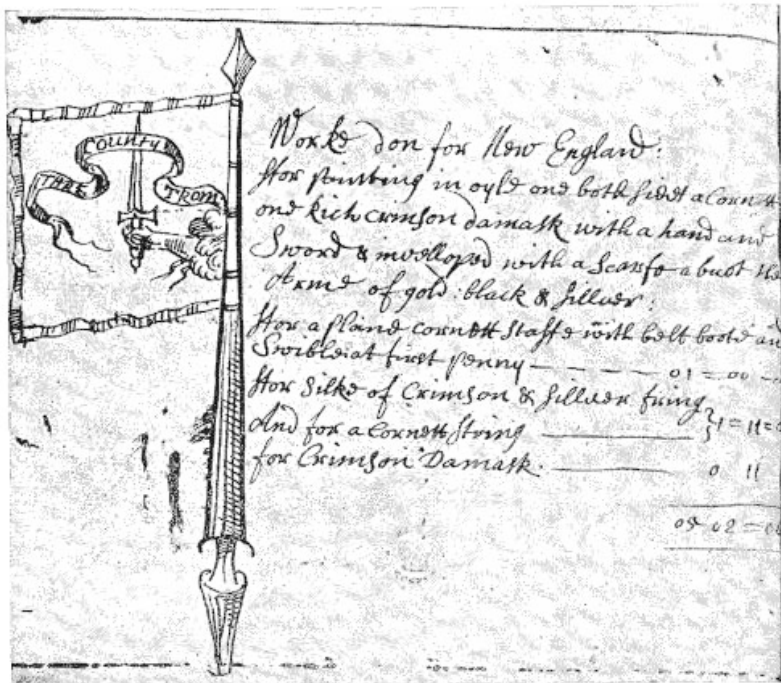 THRE COUNTY TROM
Worke don for New England:
ffor painting in oyle one both sides a Cornett
one Rich Crimson damask with a hand and
Sword & invelloped with a Scarfe about the
Arme of gold: black & sillver:
ffor a plaine Cornett Staffe with belt boote and
Swible: at first penny — 01 = 00
ffor Silke of Crimson & sillver fring
And for a Cornett String } 1 = 11 = 0
for Crimson Damask. — 0 11
05 02 = 00